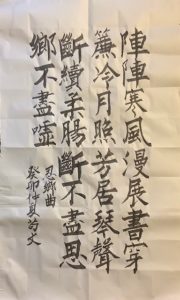 陣陣寒風漫展書穿
簾冷月照芳居琴聲
斷續柔腸斷不盡思
鄉不盡噓
鄉曲
癸卯仲夏